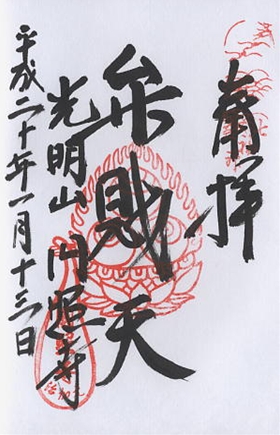 奉拝
弁財天
光明山 円照寺
平成二十年一月十三日